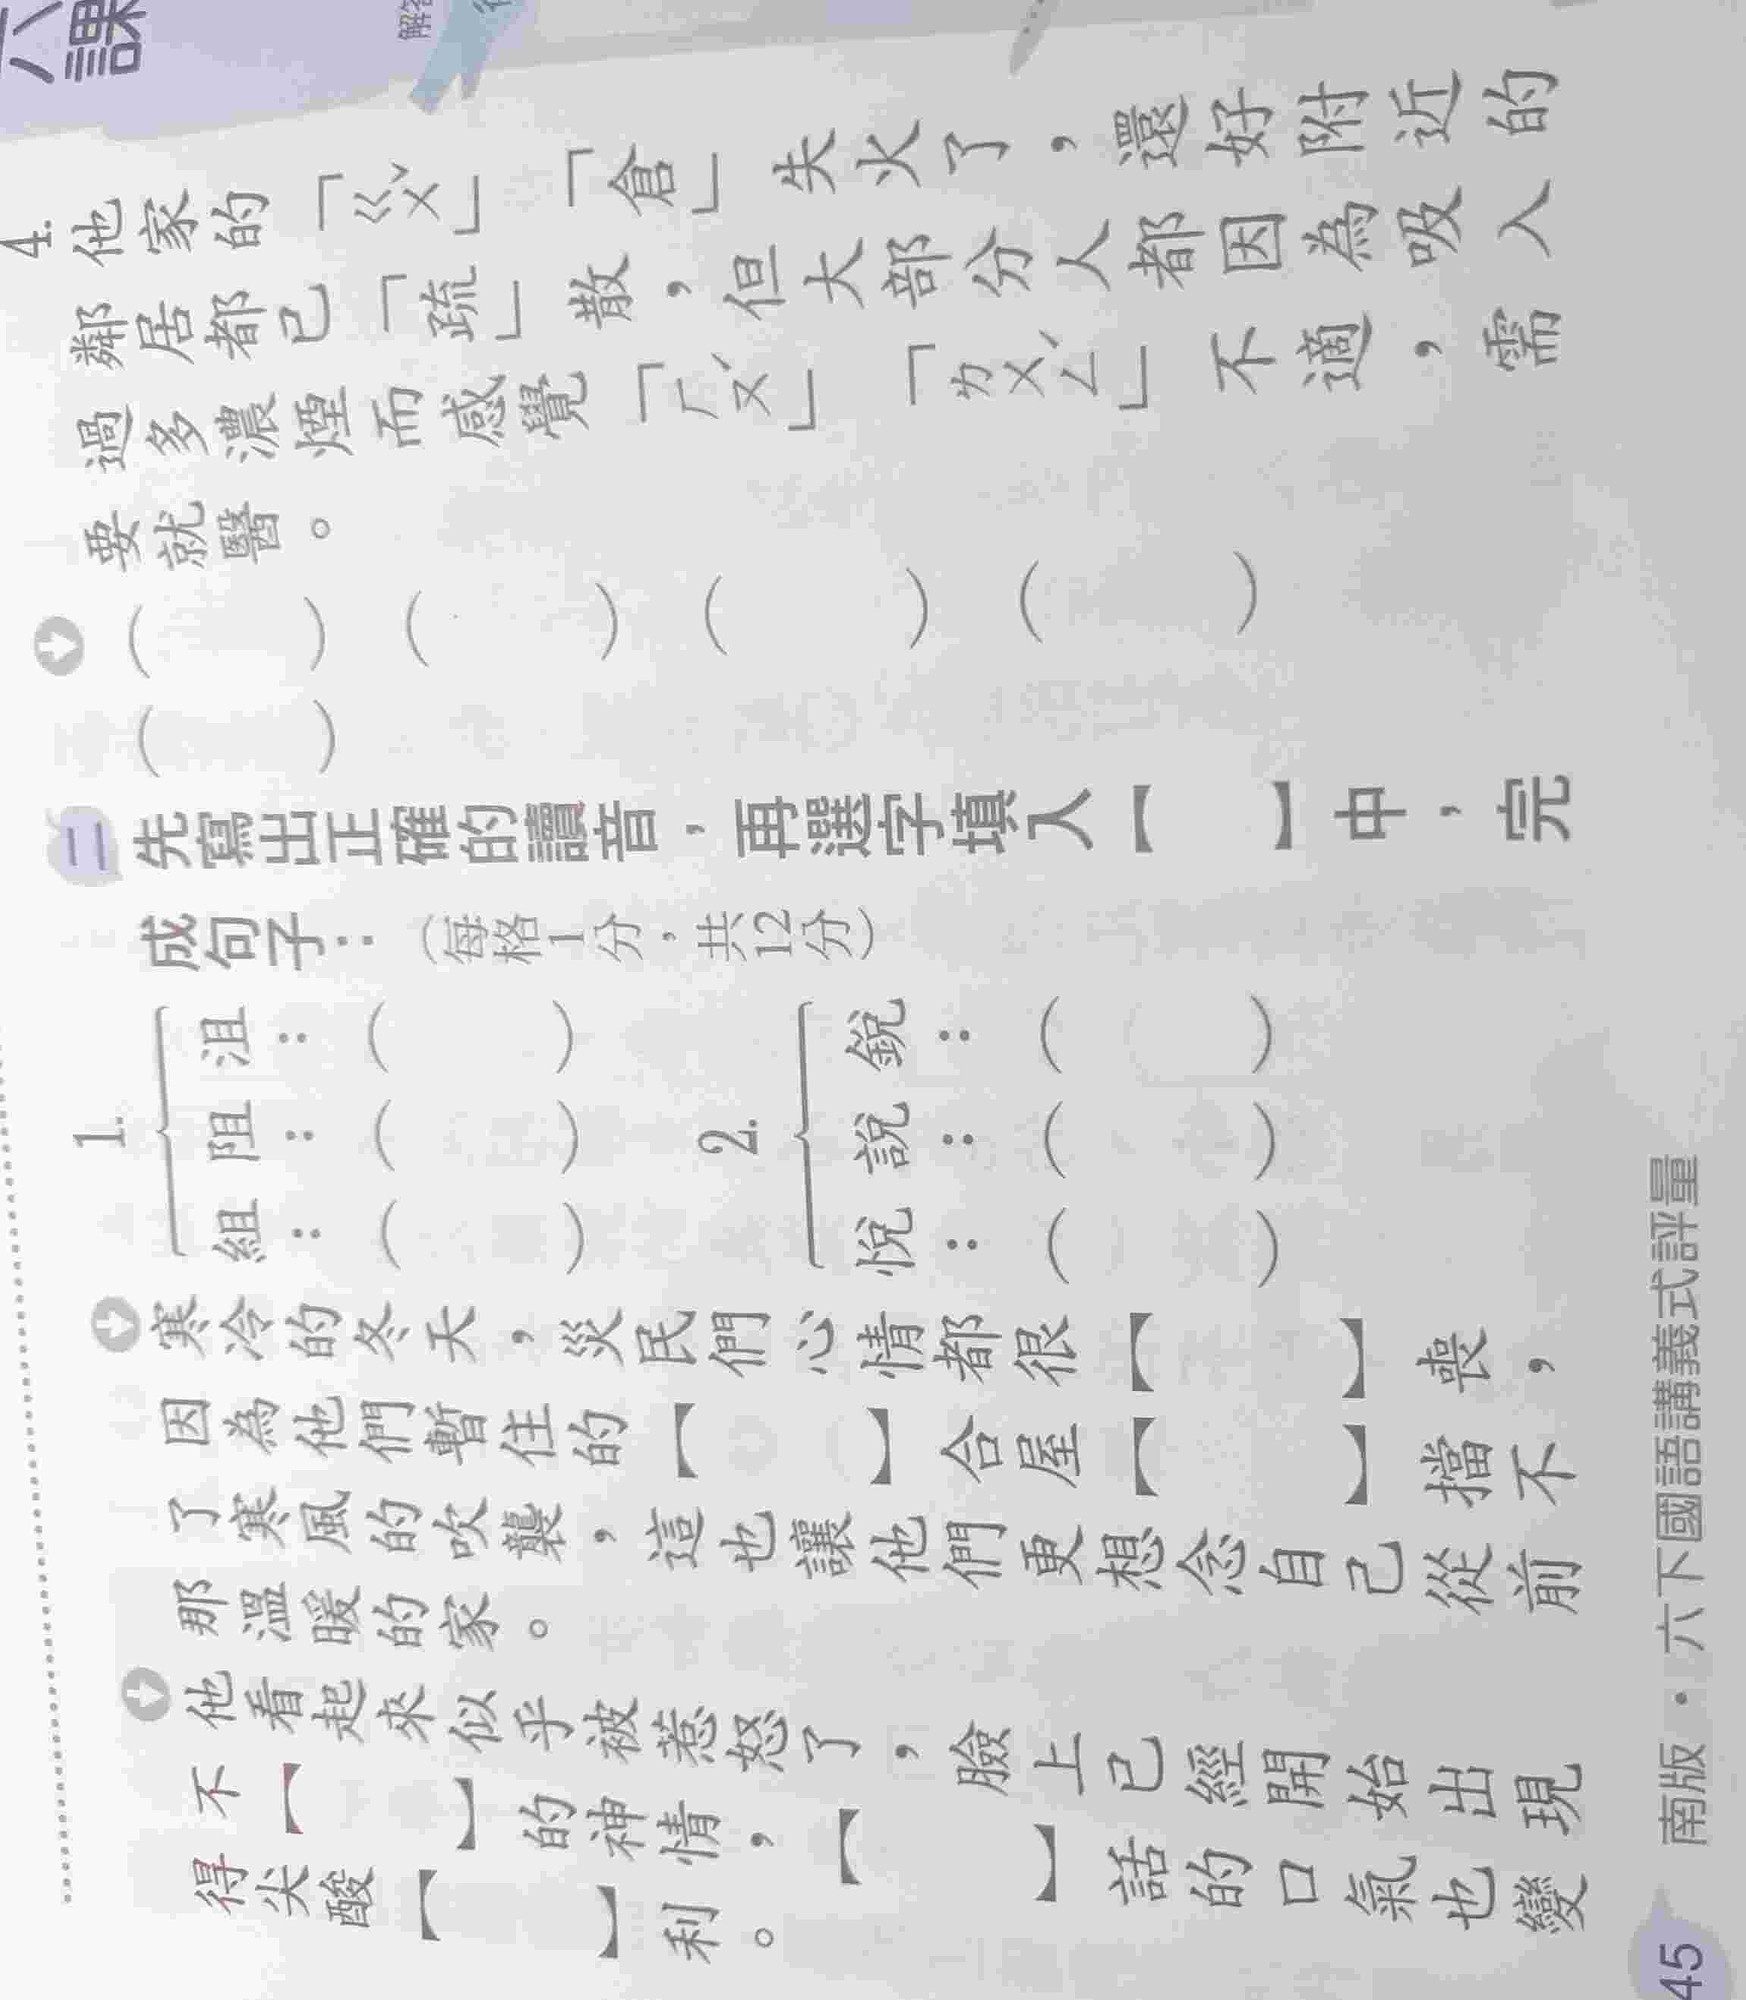 六
課
解答
4.他家的「ㄍㄨˇ」「倉」失火了，還好附近的
鄰居都已「疏」散，但大部分人都因為吸入
過多濃煙而感覺「ㄏㄨˊ」「ㄌㄨㄥˊ」不適，需
要就醫。
（　）（　）（　）（　）
（　）
二 先寫出正確的讀音，再選字填入【　】中，完
成句子：（每格1分，共12分）
1.
沮：（　）
阻：（　）
組：（　）
2.
銳：（　）
說：（　）
悅：（　）
寒冷的冬天，災民們心情都很【　】喪，
因為他們暫住的【　】合屋【　】擋不
了寒風的吹襲，這也讓他們更想念自己從前
那溫暖的家。
他看起來似乎被惹怒了，臉上已經開始出現
不【　】的神情，【　】話的口氣也變
得尖酸【　】利。
45 南版・六下國語講義式評量